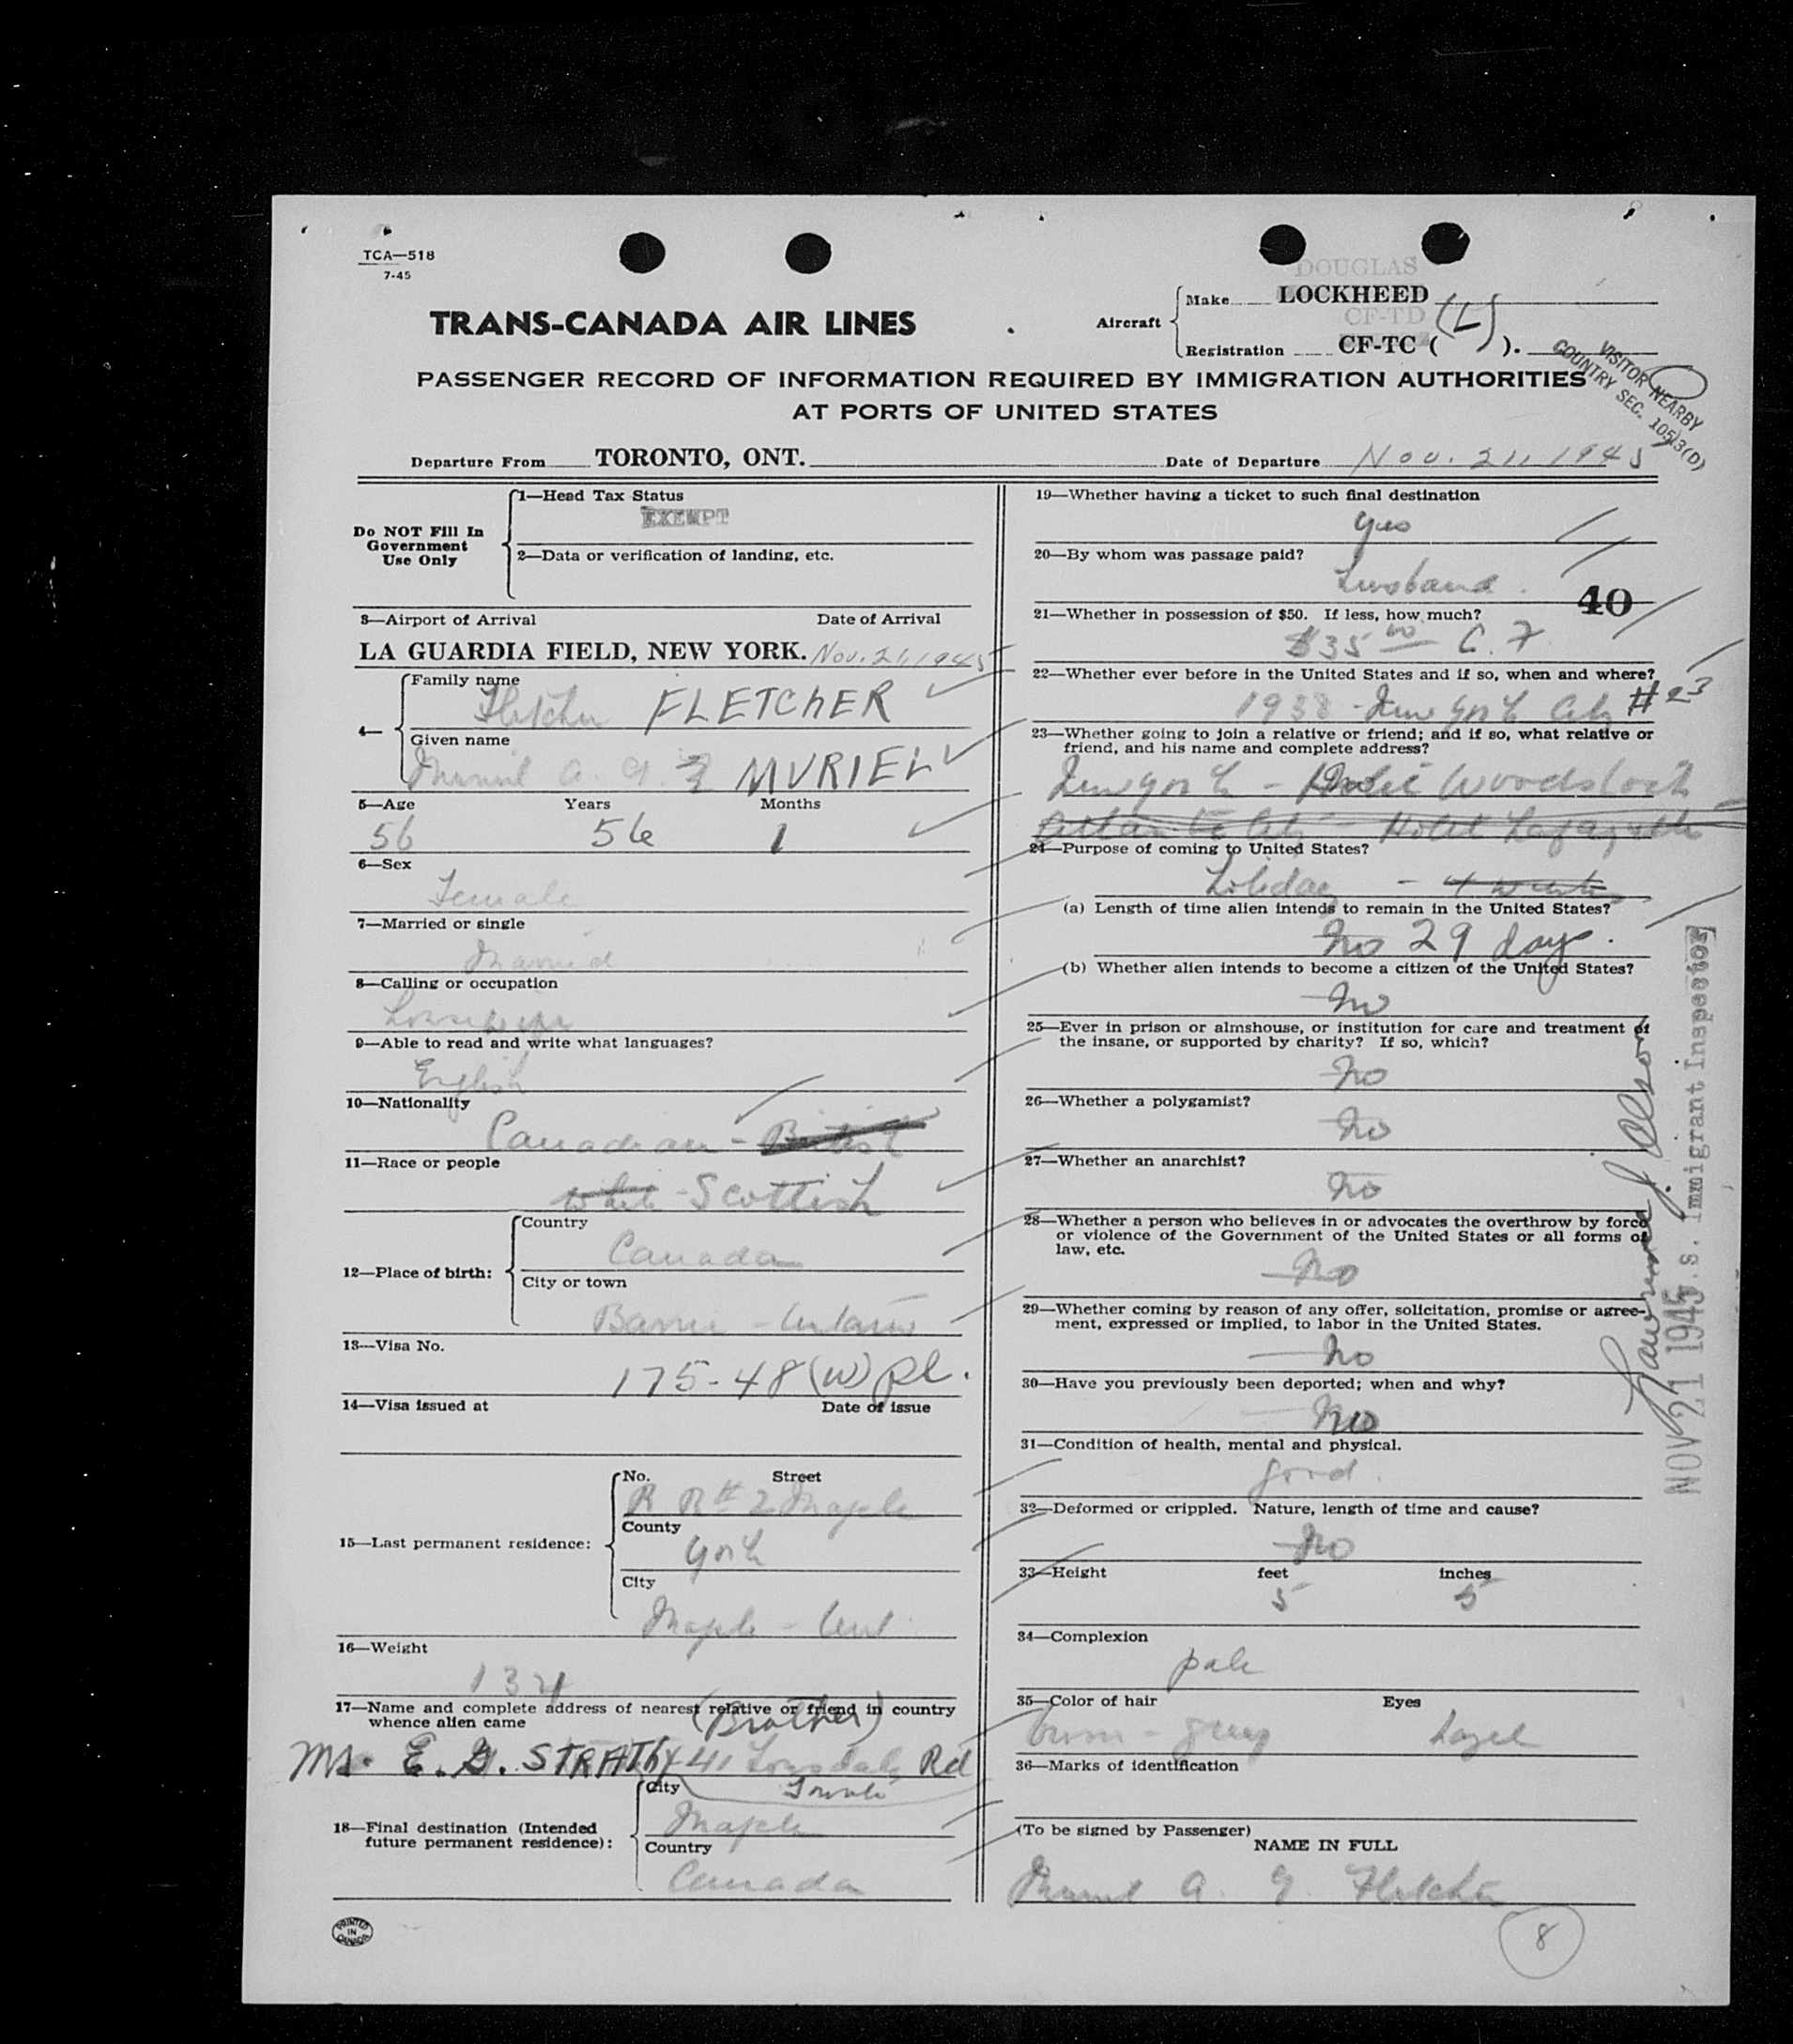 TCA—518
7-45
DOUGLAS
TRANS-CANADA AIR LINES
Aircraft
Make LOCKHEED
CF-TD
Registration CF-TC (L).
VISITOR NEARBY
COUNTRY SEC. 10513(D)
PASSENGER RECORD OF INFORMATION REQUIRED BY IMMIGRATION AUTHORITIES
AT PORTS OF UNITED STATES
Departure From TORONTO, ONT. Date of Departure Nov. 21, 1945
Do NOT Fill In
Government
Use Only
1—Head Tax Status
EXEMPT
2—Data or verification of landing, etc.
3—Airport of Arrival Date of Arrival
LA GUARDIA FIELD, NEW YORK. Nov. 21, 1945
4—
Family name
Fletcher FLETCHER
Given name
Muriel A. G. MURIEL
5—Age Years Months
56 56 1
6—Sex
Female
7—Married or single
Married
8—Calling or occupation
Housewife
9—Able to read and write what languages?
English
10—Nationality
Canadian - British
11—Race or people
White - Scottish
12—Place of birth:
Country
Canada
City or town
Barrie - Ontario
13—Visa No.
175-48 (W) pl.
14—Visa issued at Date of issue
15—Last permanent residence:
No. Street
R R # 2 Maple
County
York
City
Maple - Ont
16—Weight
134
17—Name and complete address of nearest relative or friend in country
whence alien came
(Brother)
Mr. E. G. STRATHY 41 Lonsdale Rd
Toronto
18—Final destination (Intended
future permanent residence):
City
Maple
Country
Canada
PRINTED IN CANADA
19—Whether having a ticket to such final destination
yes
20—By whom was passage paid?
Husband.
40
21—Whether in possession of $50. If less, how much?
$35 00 C. F.
22—Whether ever before in the United States and if so, when and where?
1938 - New York City # 23
23—Whether going to join a relative or friend; and if so, what relative or
friend, and his name and complete address?
New York - Hotel Woodstock
Atlantic City - Hotel Lafayette
24—Purpose of coming to United States?
Holiday - 4 weeks
(a) Length of time alien intends to remain in the United States?
No 29 days.
(b) Whether alien intends to become a citizen of the United States?
No
25—Ever in prison or almshouse, or institution for care and treatment of
the insane, or supported by charity? If so, which?
No
26—Whether a polygamist?
No
27—Whether an anarchist?
No
28—Whether a person who believes in or advocates the overthrow by force
or violence of the Government of the United States or all forms of
law, etc.
No
29—Whether coming by reason of any offer, solicitation, promise or agree-
ment, expressed or implied, to labor in the United States.
No
30—Have you previously been deported; when and why?
No
31—Condition of health, mental and physical.
good.
32—Deformed or crippled. Nature, length of time and cause?
No
33—Height feet inches
5 5
34—Complexion
pale
35—Color of hair Eyes
brown - grey hazel
36—Marks of identification
(To be signed by Passenger)
NAME IN FULL
Muriel A. G. Fletcher
8
NOV 21 1945
U.S. Immigrant Inspector